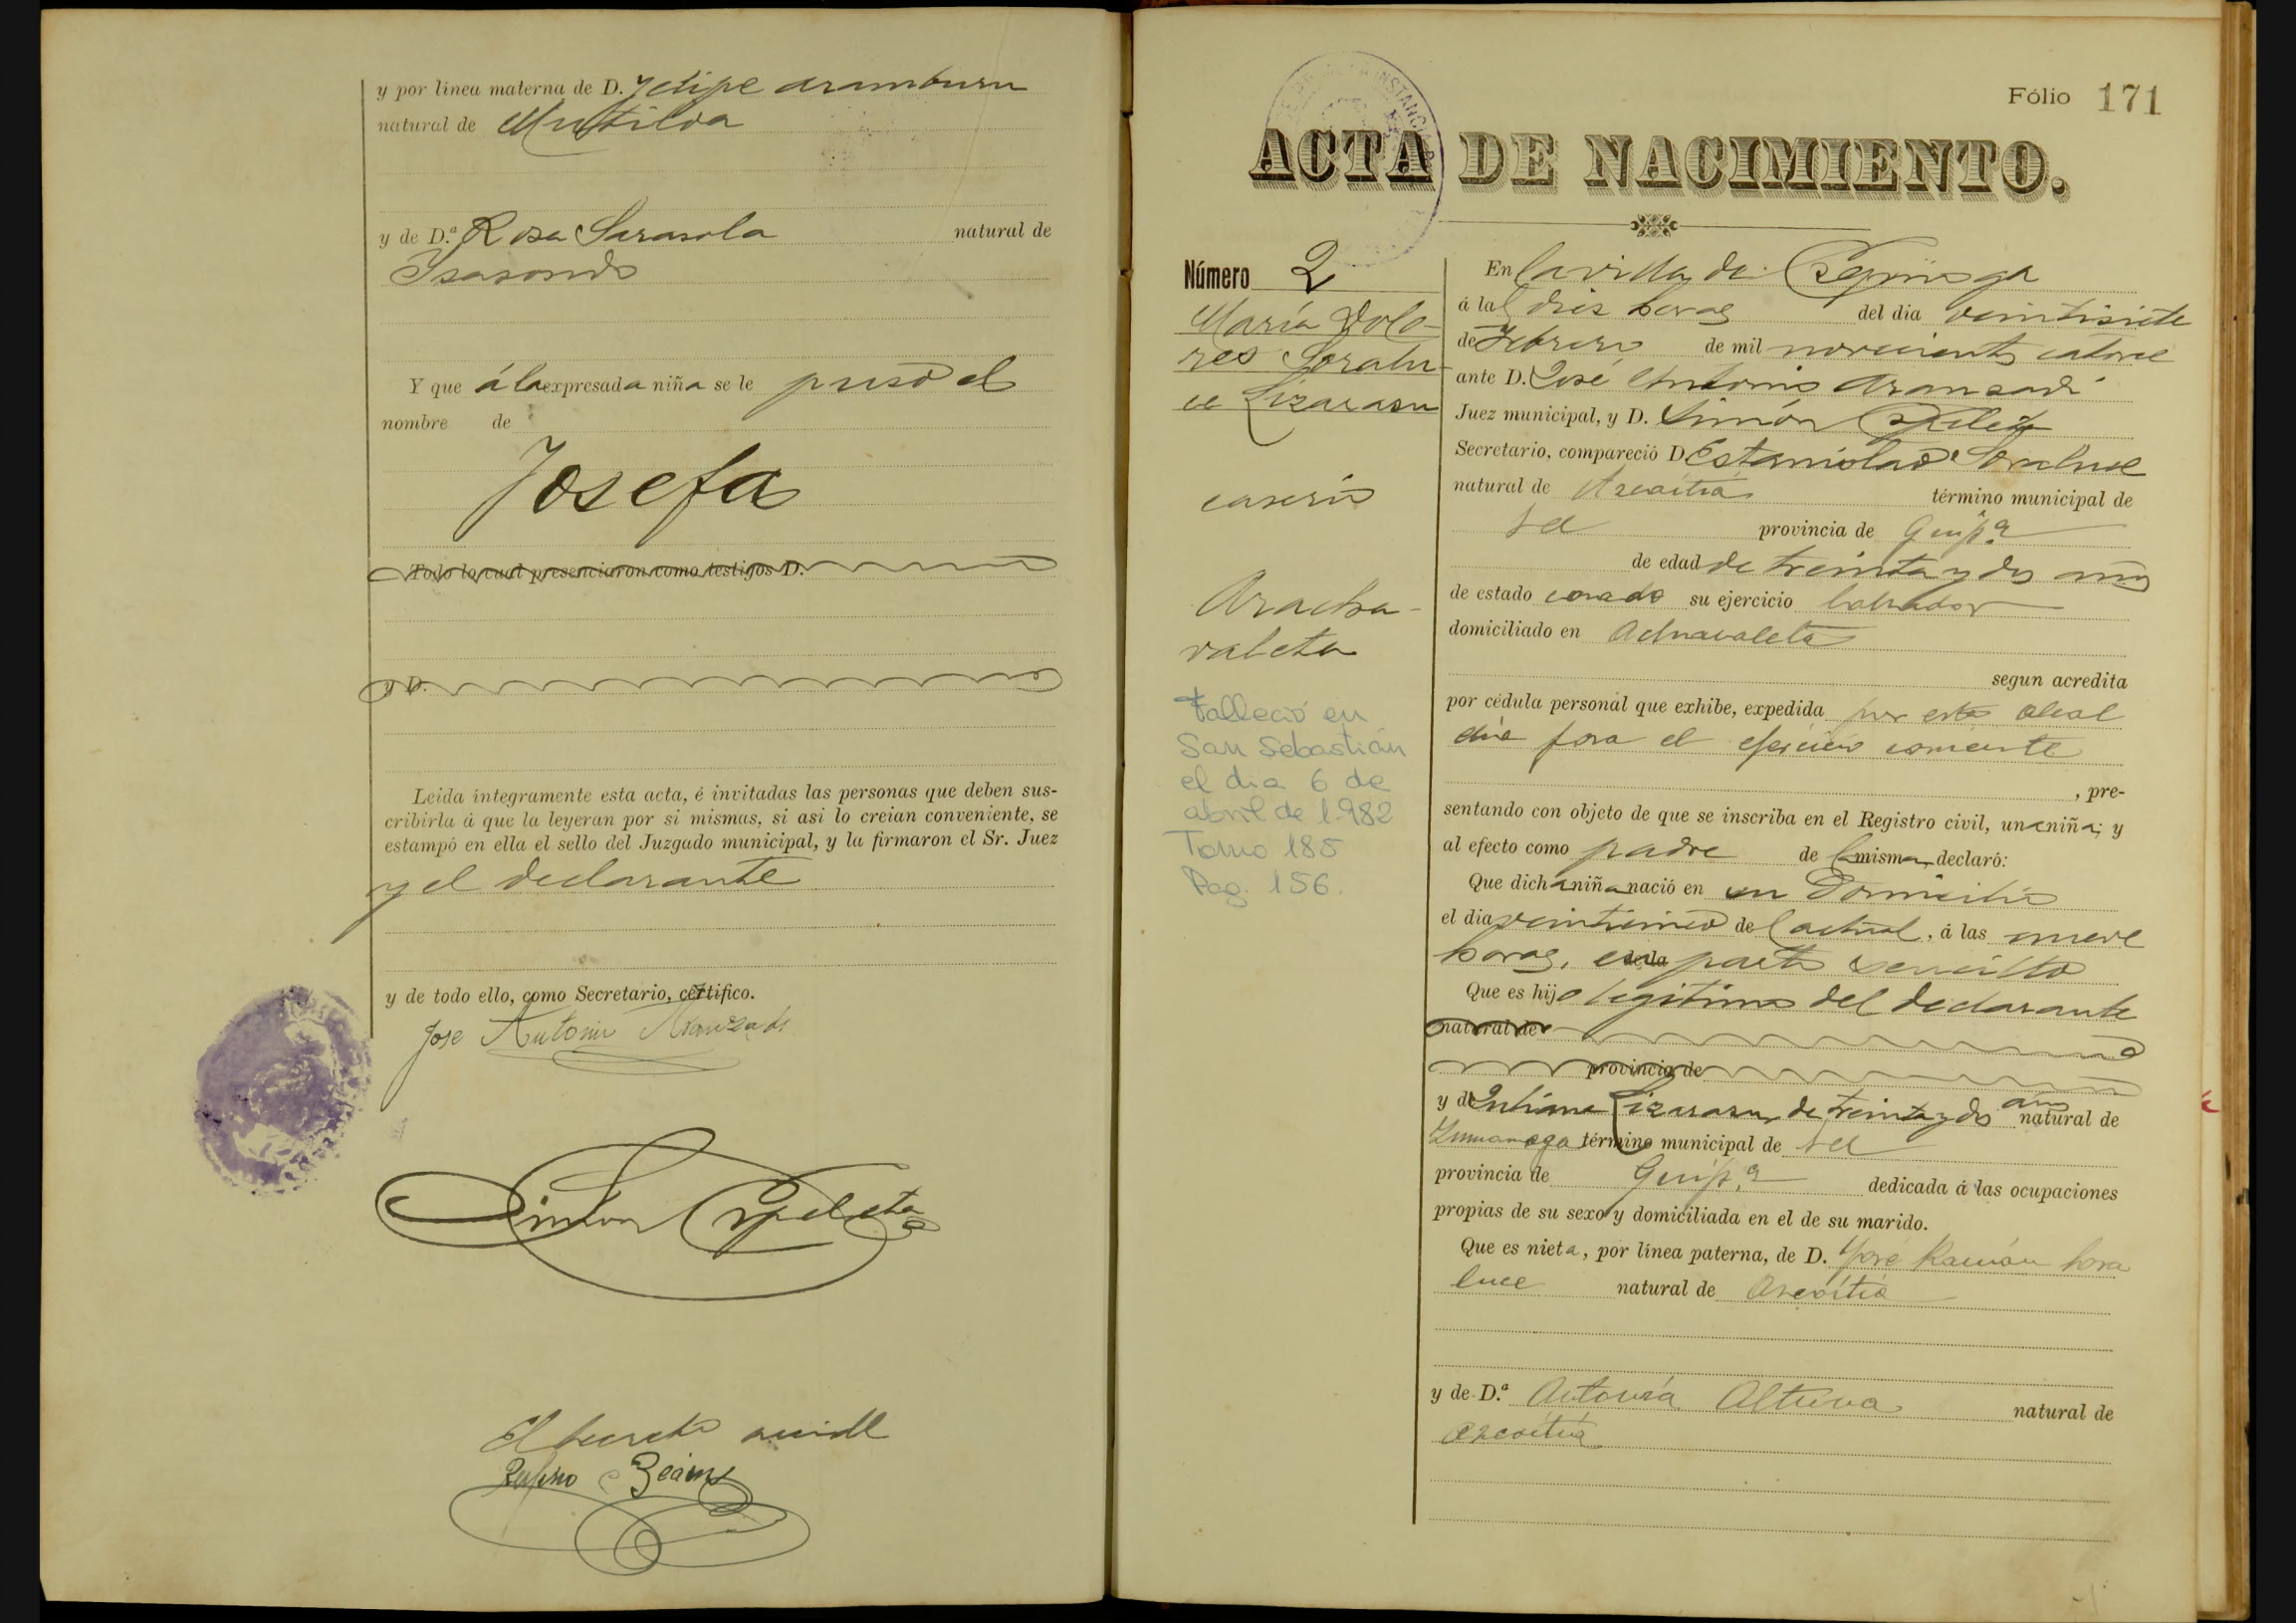 y por línea materna de D. Felipe Aramburu
natural de Mutiloa
y de D.ª Rosa Sarasola natural de
Isasondo
Y que á la expresada niña se le puso el
nombre de
Josefa
Todo lo cual presenciaron como testigos D.
y D.
Leida íntegramente esta acta, é invitadas las personas que deben sus-
cribirla á que la leyeran por si mismas, si asi lo creian conveniente, se
estampó en ella el sello del Juzgado municipal, y la firmaron el Sr. Juez
y el declarante
y de todo ello, como Secretario, certifico.
Jose Antonio Aranzadi
Simón Ezpeleta
El Secreto
Rufino
Fólio 171
ACTA DE NACIMIENTO.
Número 2
María Dolo-
res Soralu-
ce Lizarasu
caserío
Aracha-
valeta
Falleció en
San Sebastián
el dia 6 de
abril de 1.982
Tomo 185
Pag. 156.
En la villa de Cegama
á las diez horas del dia veintisiete
de Febrero de mil novecientos catorce
ante D. José Antonio Aranzadi
Juez municipal, y D. Simón Ezpeleta
Secretario, compareció D. Estanislao Soraluce
natural de Azcoitia término municipal de
id provincia de Guip.ª
de edad de treinta y dos años
de estado casado su ejercicio labrador
domiciliado en Achavaleta
segun acredita
por cédula personal que exhibe, expedida por esta Alcal
día para el ejercicio corriente
, pre-
sentando con objeto de que se inscriba en el Registro civil, una niña; y
al efecto como padre de la misma declaró:
Que dicha niña nació en su Domicilio
el dia veinticinco del actual, á las nueve
horas, en parto sencillo
Que es hija legitima del declarante
natural de
provincia de
y de Juliana Lizarasu de treinta y dos años natural de
Zumarraga término municipal de id
provincia de Guip.ª dedicada á las ocupaciones
propias de su sexo y domiciliada en el de su marido.
Que es nieta, por línea paterna, de D. José Ramón Sora
luce natural de Azcoitia
y de D.ª Antonia Altuna natural de
Azcoitia